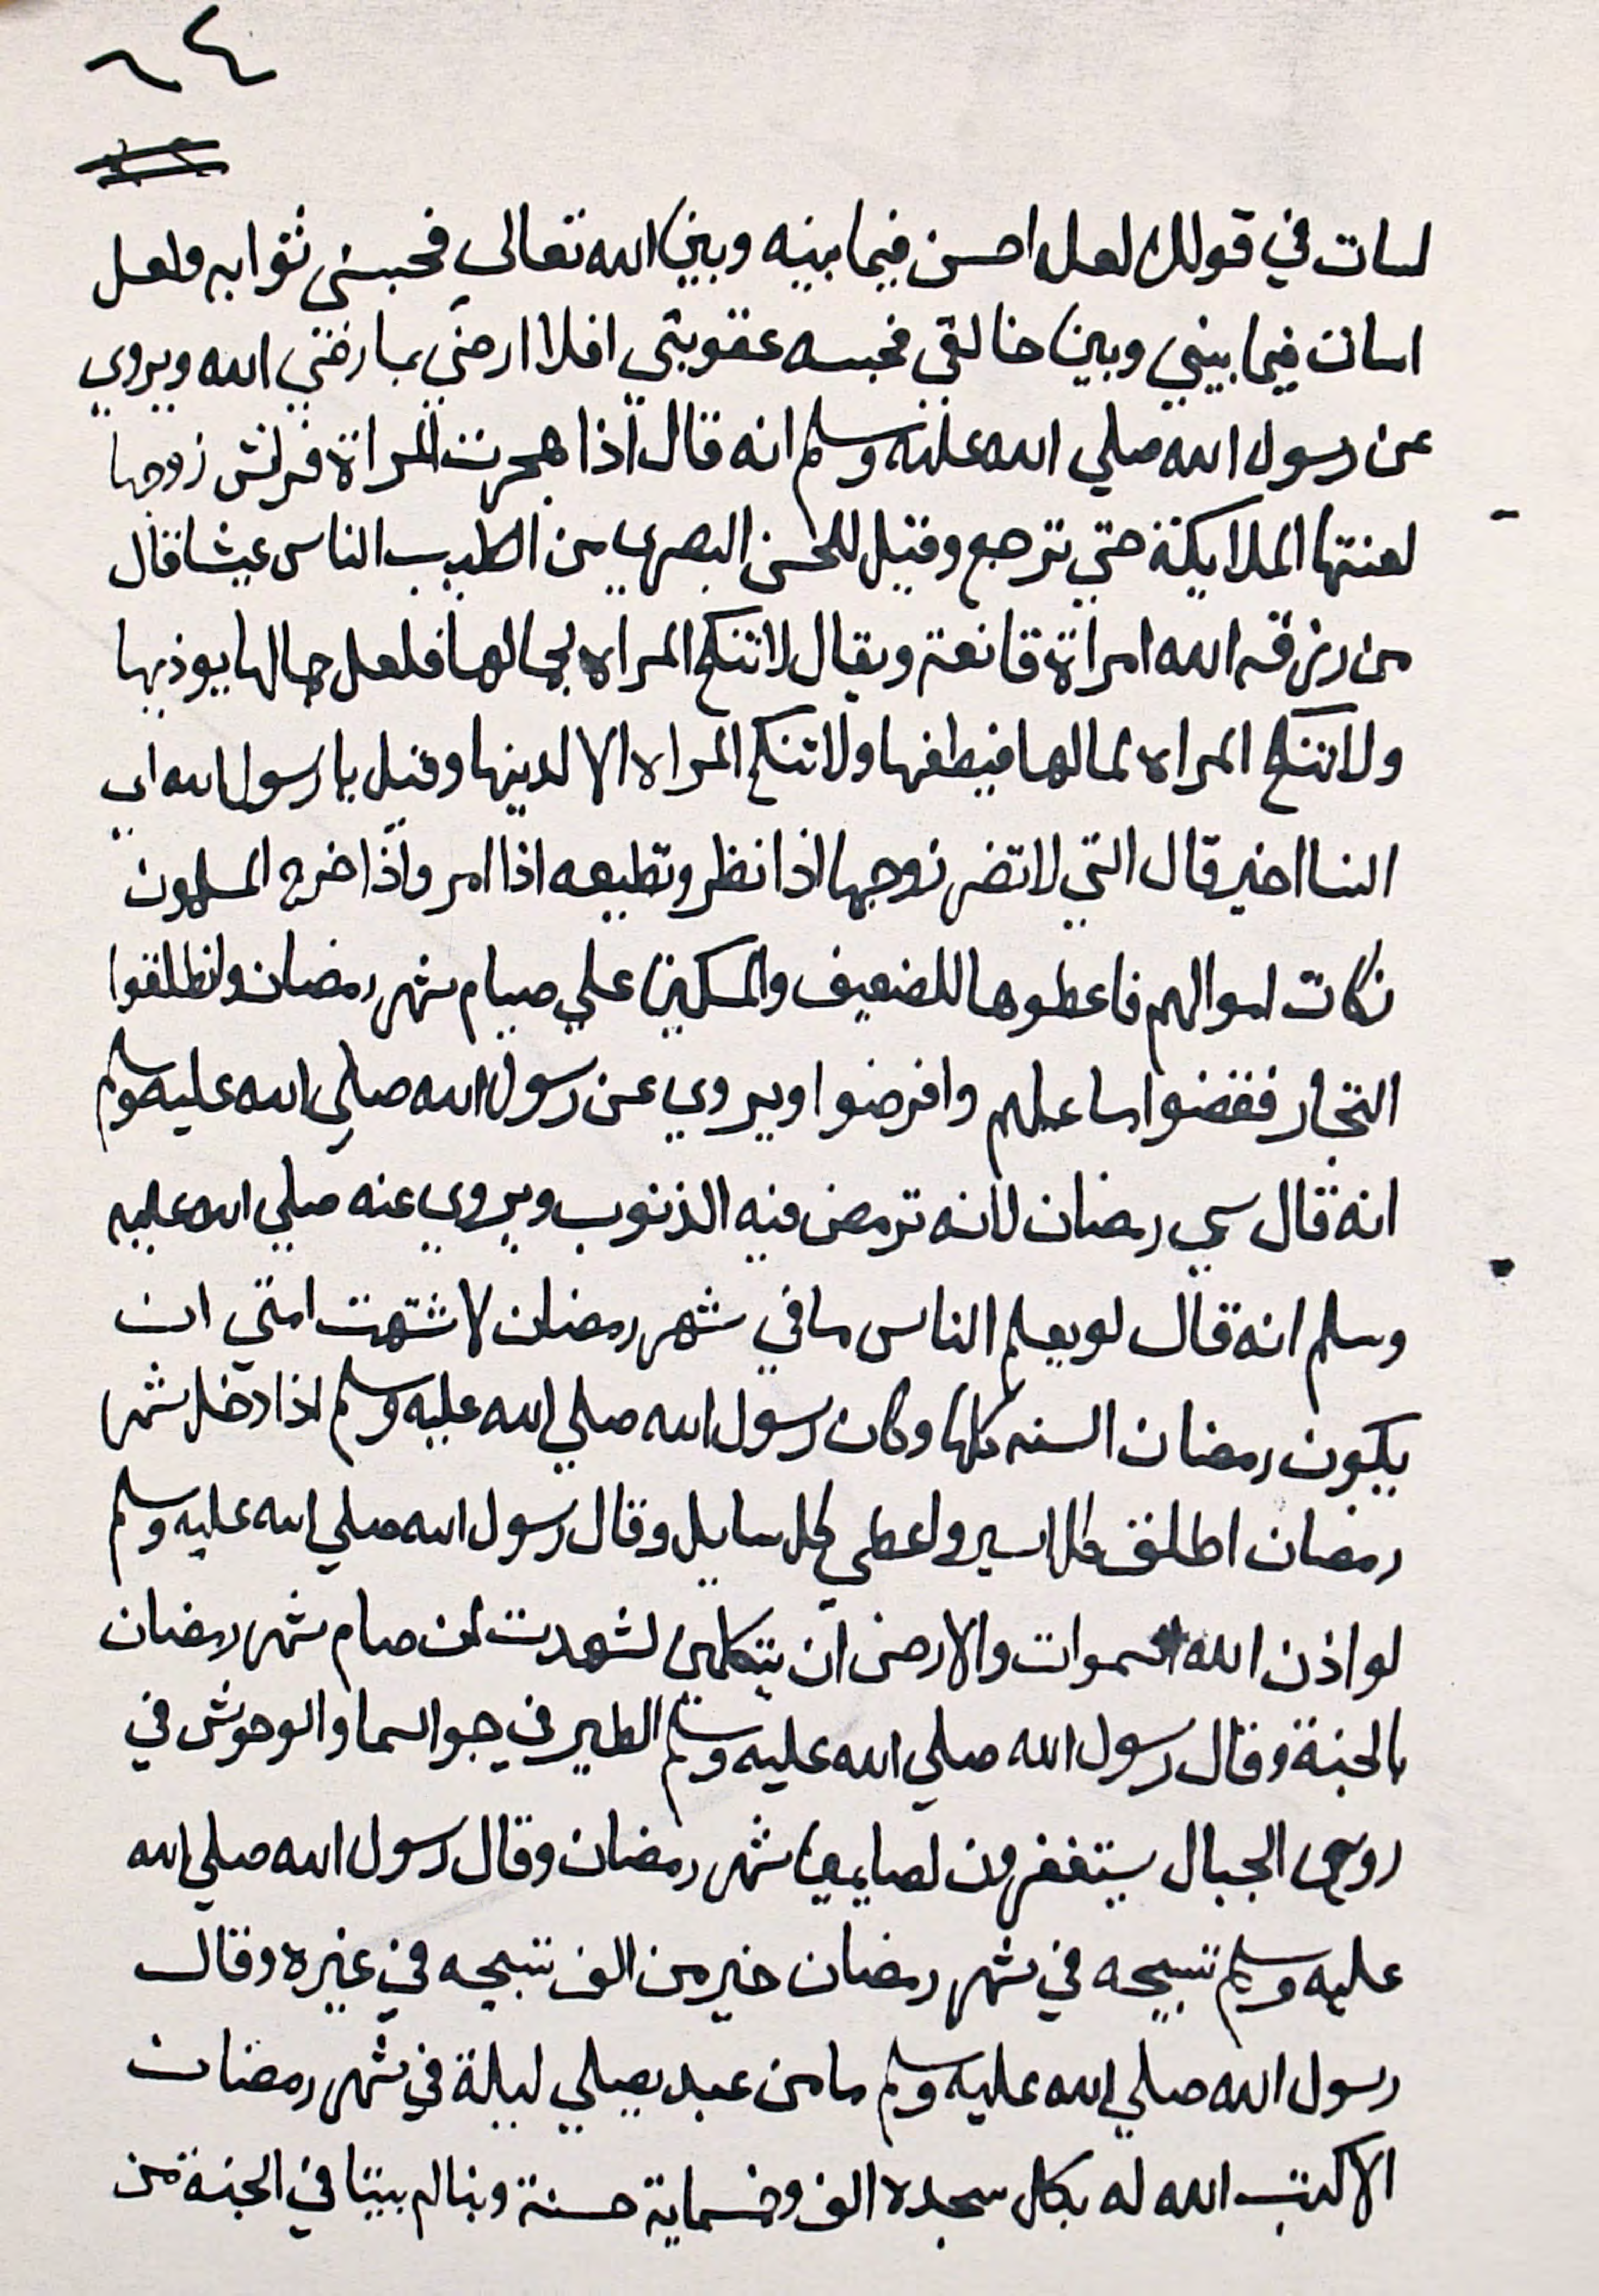 ٦٤
اسات في قولك لعل احسن فيما بينه وبين الله تعالى فحبسني ثوابه ولعل
اسات فيما بيني وبين خالقي فحبسه عقوبتي افلا ارضي بما رضي الله ويروي
عن رسول الله صلي الله عليه وسلم انه قال اذا هجرت المراة فراش زوجها
لعنتها الملايكة حتي ترجع وقيل للحسن البصري من اطيب الناس عيشا قال
من رزقه الله امراة قانعة ويقال لا تنكح المراه لجمالها فلعل جمالها يوذيها
ولا تنكح المراه لمالها فيطغها ولا تنكح المراه الا لدينها وقيل يا رسول الله اي
النسا اخير قال التي لا تضر زوجها اذا نظر وتطيعه اذا امر واذا اخرج المسلمون
زكات اموالهم فاعطوها للضعيف والمسكين علي صيام شهر رمضان وانطلقوا
التجار فقضوا ما عليهم وافرضوا ويروي عن رسول الله صلي الله عليه وسلم
انه قال سمي رمضان لانه ترمض فيه الذنوب ويروي عنه صلي الله عليه
وسلم انه قال لو يعلم الناس ما في شهر رمضان لاشتهت امتي ان
يكون رمضان السنه كلها وكان رسول الله صلي الله عليه وسلم اذا دخل شهر
رمضان اطلق كل اسير واعطي كل سايل وقال رسول الله صلي الله عليه وسلم
لو اذن الله السموات والارض ان يتكلمن لشهدت لمن صام شهر رمضان
بالجنة وقال رسول الله صلي الله عليه وسلم الطير في جو السما والوحوش في
روس الجبال يستغفرون لصايمين شهر رمضان وقال رسول الله صلي الله
عليه وسلم تسبيحه في شهر رمضان خير من الف تسبيحه في غيره وقال
رسول الله صلي الله عليه وسلم ما من عبد يصلي ليلة في شهر رمضان
الا كتب الله له بكل سجده الف وخمسماية حسنة وبنا لم بيتا في الجنة من